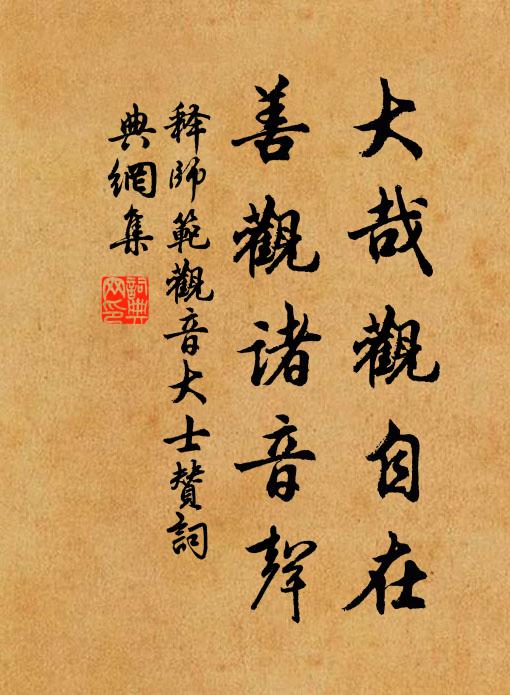 大哉觀自在
善觀諸音聲
释師範觀音大士贊詞
典網集
詞典
网印